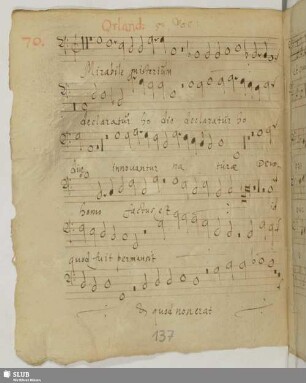 Orlandi 5 Voc
70.
Mirabile misterium
declaratur ho die declaratur ho
die innovantur na turæ Deus
homo factus est
quod fuit permansit
& quod non erat
137
SLUB
Wir führen Wissen.